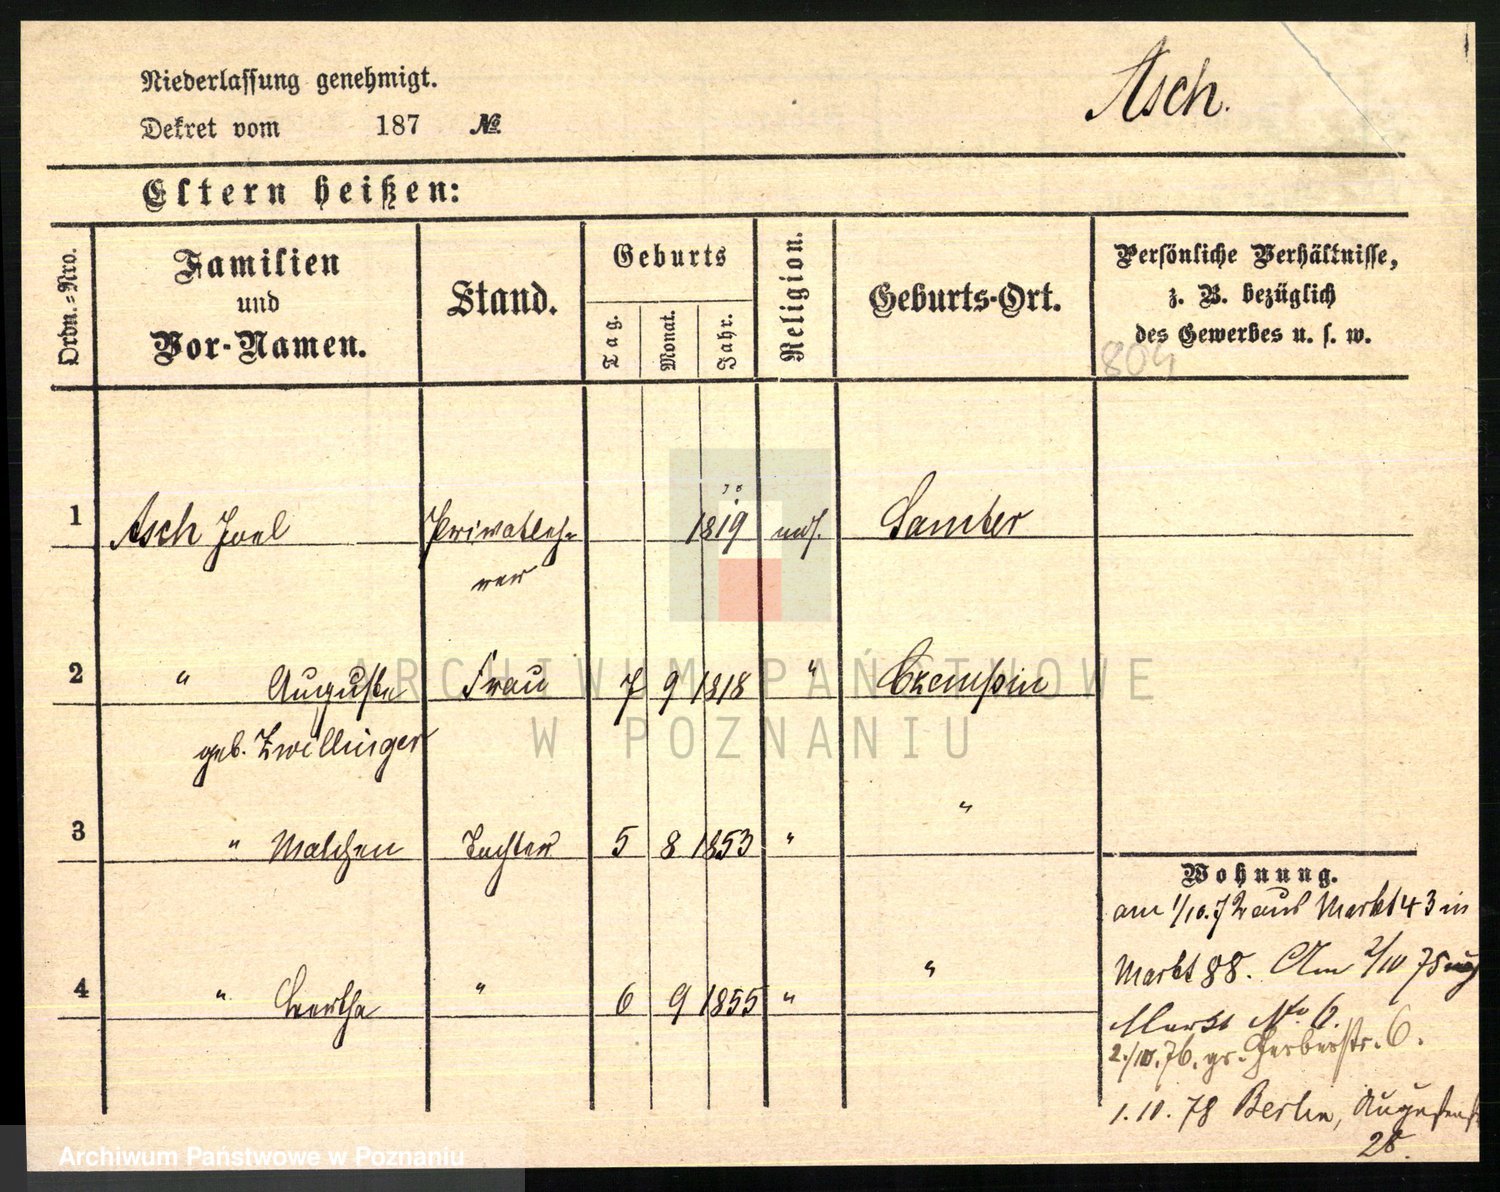 Niederlassung genehmigt.
Asch.
Dekret vom 187 №
Eltern heißen:
Ordn.-Nro.
Familien
und
Vor-Namen.
Stand.
Geburts
Tag.
Monat.
Jahr.
Religion.
Geburts-Ort.
Persönliche Verhältnisse,
z. B. bezüglich
des Gewerbes u. s. w.
804
1 Asch Joel Privatleh- 1819 mos. Samter
rer
2 " Auguste Frau 7 9 1818 " Czempin
geb. Zwillinger
3 " Malchen Tochter 5 8 1853 " "
4 " Bertha " 6 9 1855 " "
Wohnung.
am 1/10.72 aus Markt 43 in
Markt 88. Am 2/10 75
Markt No 6.
2./10.76. gr. Gerberstr. 6.
1.10.78 Berlin, Augustenst
28.
ARCHIWUM PAŃSTWOWE
W POZNANIU
Archiwum Państwowe w Poznaniu